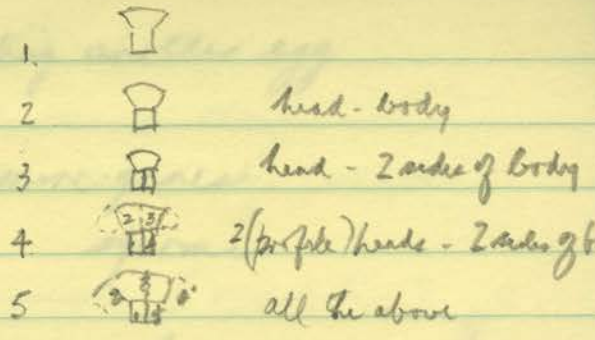 1.
2 head - body
3 head - 2 sides of body
4 2 3 2 (profile) heads - 2 sides of b
5 all the above